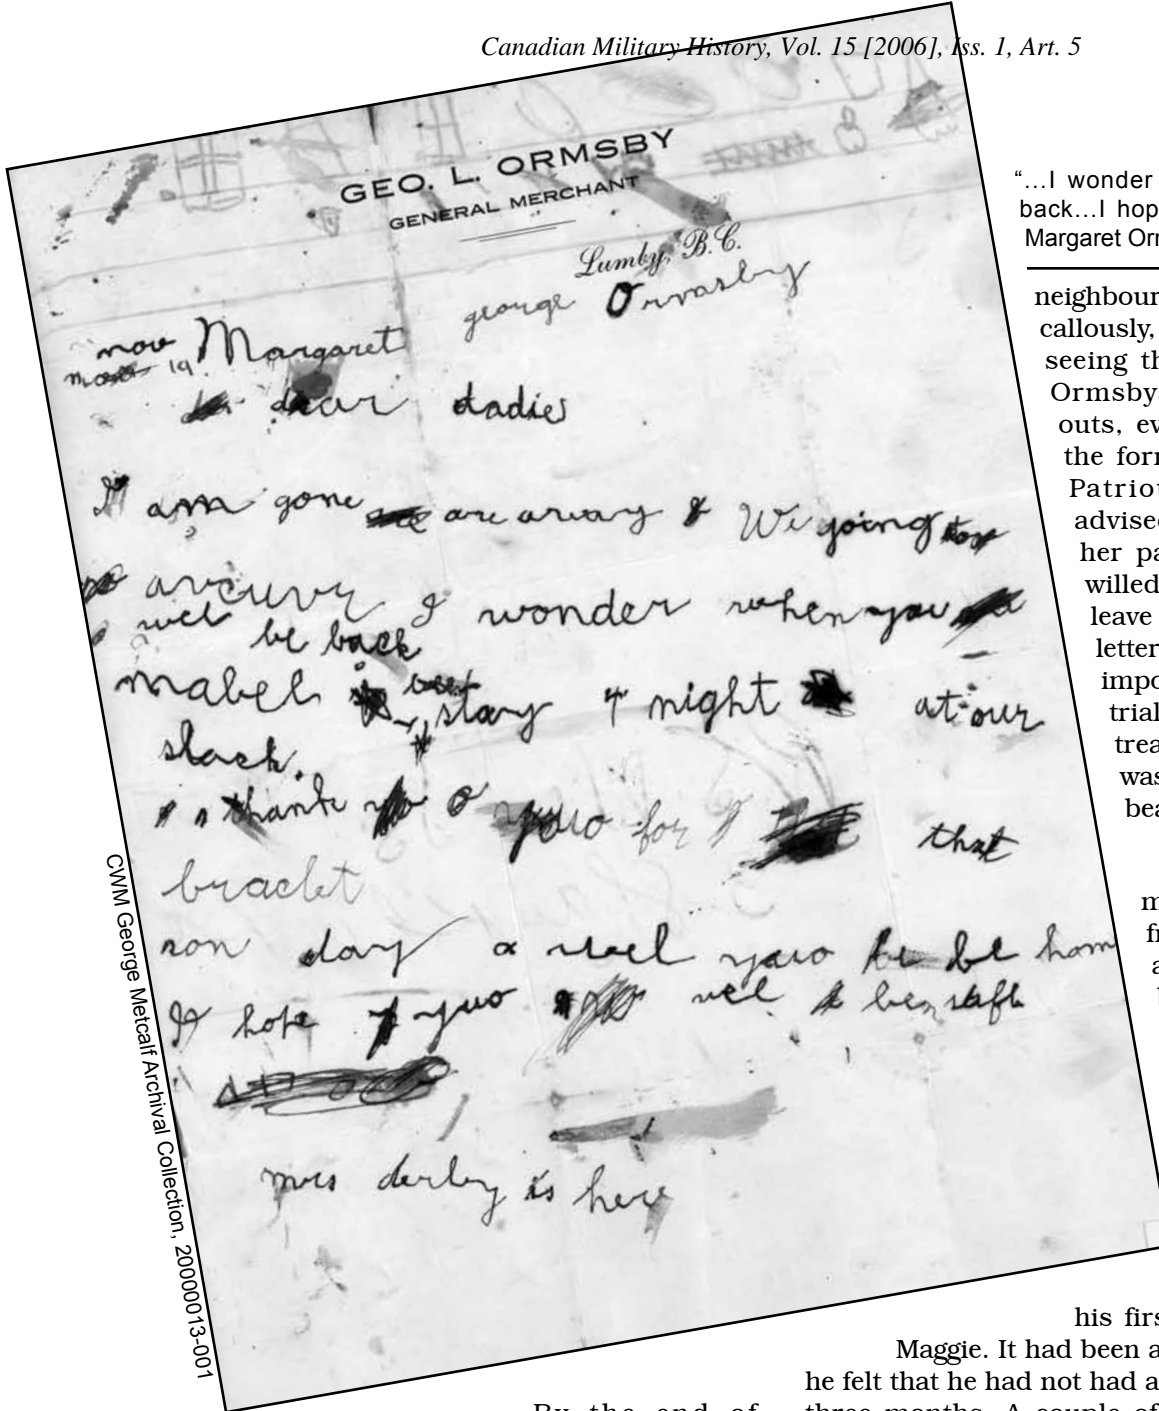 Canadian Military History, Vol. 15 [2006], Iss. 1, Art. 5
GEO. L. ORMSBY
GENERAL MERCHANT
Lumby, B.C.
george Ormasby
nov Margaret
19
dear dadie
I am gone are away & We going
I wonder when you
wel be back
mabel stay 4 night at our
slack.
thank yuo for that
braclet
son day a wel yuo be hom
I hope yuo wel be safe
mrs derby is here
CWM George Metcalf Archival Collection, 20000013-001
“…I wonder
back…I hop
Margaret Orr
neighbour
callously,
seeing th
Ormsby
outs, ev
the forr
Patriot
advised
her pa
willed
leave
letter
impo
trial
trea
was
bea
m
fr
a
his firs
Maggie. It had been a
he felt that he had not had a
By the end of three months. A couple of